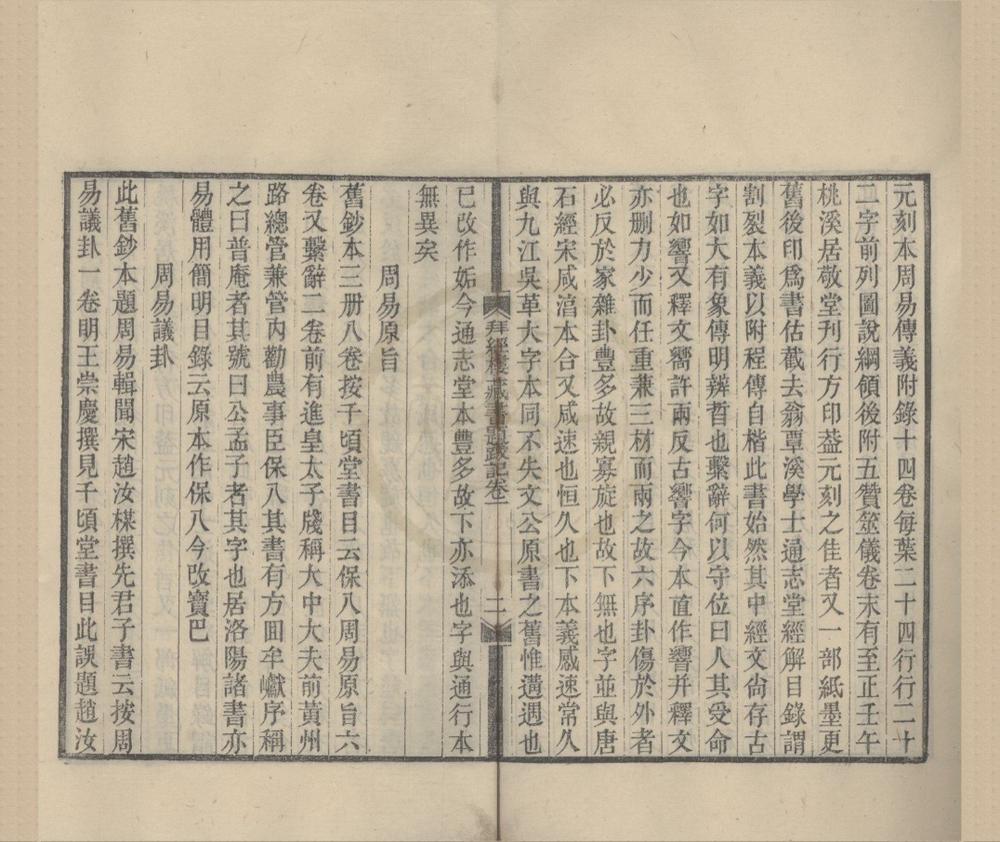 元刻本周易傳義附錄十四卷每葉二十四行行二十
二字前列圖說綱領後附五贊筮儀卷末有至正壬午
桃溪居敬堂刊行方印葢元刻之佳者又一部紙墨更
舊後印爲書估截去翁覃溪學士通志堂經解目錄謂
割裂本義以附程傳自楷此書始然其中經文尙存古
字如大有象傳明辨晢也繫辭何以守位曰人其受命
也如響又釋文嚮許兩反古響字今本直作響并釋文
亦删力少而任重兼三材而兩之故六序卦傷於外者
必反於家雜卦豐多故親寡旅也故下無也字並與唐
石經宋咸湻本合又咸速也恒久也下本義感速常久
與九江吳革大字本同不失文公原書之舊惟遘遇也
拜經樓藏書題跋記卷一 二
已改作姤今通志堂本豐多故下亦添也字與通行本
無異矣
周易原旨
舊鈔本三册八卷按千頃堂書目云保八周易原旨六
卷又繫辭二卷前有進皇太子牋稱大中大夫前黃州
路總管兼管內勸農事臣保八其書有方回牟巘序稱
之曰普庵者其號曰公孟子者其字也居洛陽諸書亦
易體用簡明目錄云原本作保八今改寶巴
周易議卦
此舊鈔本題周易輯聞宋趙汝楳撰先君子書云按周
易議卦一卷明王崇慶撰見千頃堂書目此誤題趙汝